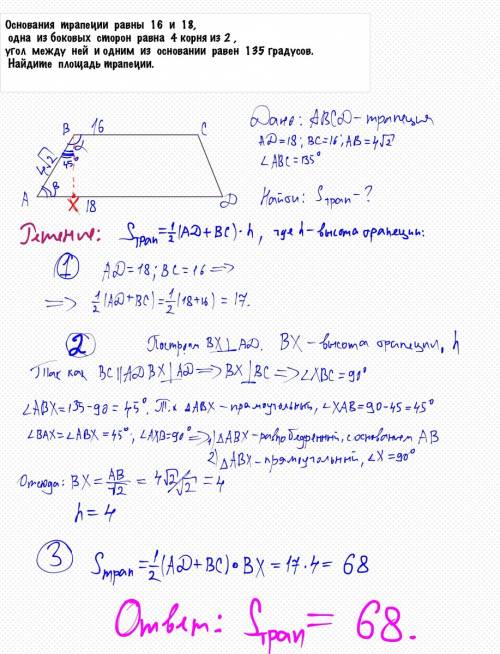 Основания трапеции равны 16 и 18,
одна из боковых сторон равна 4 корня из 2 ,
угол между ней и одним из основании равен 135 градусов.
Найдите площадь трапеции.
B 16 C
4√2 α
45°
A β X 18 D
Дано: ABCD-трапеция
AD=18; BC=16; AB=4√2
∠ABC=135°
Найти: Sтрап-?
Решение: Sтрап=1/2(AD+BC)·h, где h-высота трапеции:
1 AD=18; BC=16 =>
=> 1/2(AD+BC)=1/2(18+16)=17.
2 Построим BX⊥AD. BX-высота трапеции, h
Так как BC||AD BX⊥AD => BX⊥BC => ∠XBC=90°
∠ABX=135-90=45°. Т.к ΔABX-прямоугольный, ∠XAB=90-45=45°
∠BAX=∠ABX=45°, ∠AXB=90° => 1) ΔABX-равнобедренный, с основанием AB
2) ΔABX-прямоугольный, ∠X=90°
Отсюда: BX=AB/√2=4√2/√2=4
h=4
3 Sтрап=1/2(AD+BC)·BX=17·4=68
Ответ: Sтрап=68.